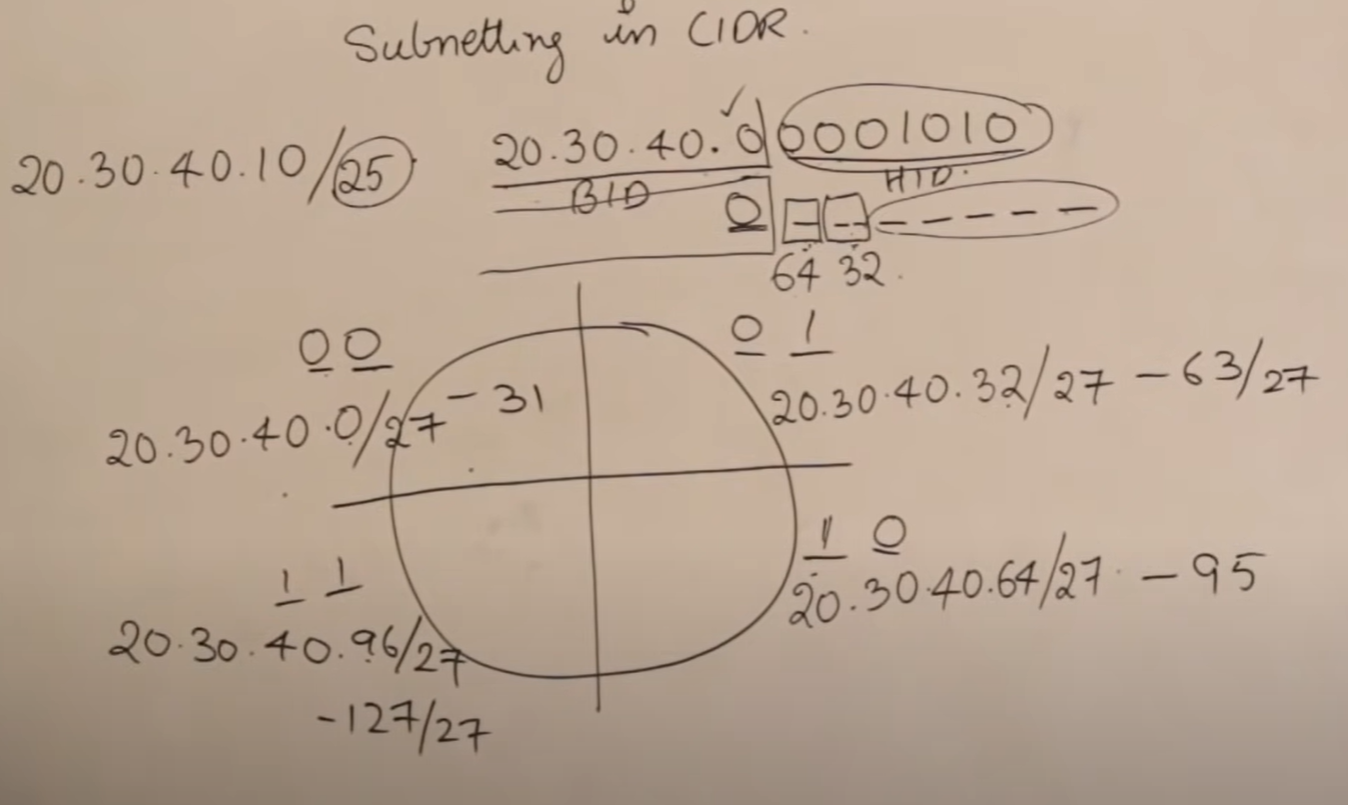 Subnetting in CIDR.
20.30.40.10/25
20.30.40.0 0001010
BID
HID.
0 - -- - - - - -
64 32.
00
0 1
20.30.40.0/27 - 31
20.30.40.32/27 - 63/27
1 1
1 0
20.30.40.96/27
20.30.40.64/27 - 95
-127/27